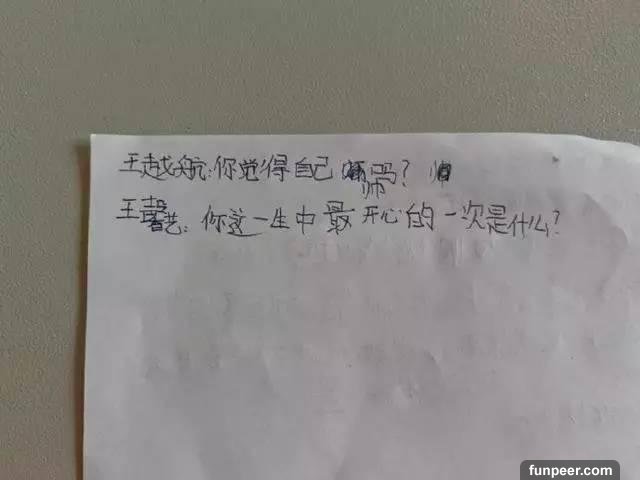 王越航:你觉得自己帅吗?
王馨艺:你这一生中最开心的一次是什么?
funpeer.com